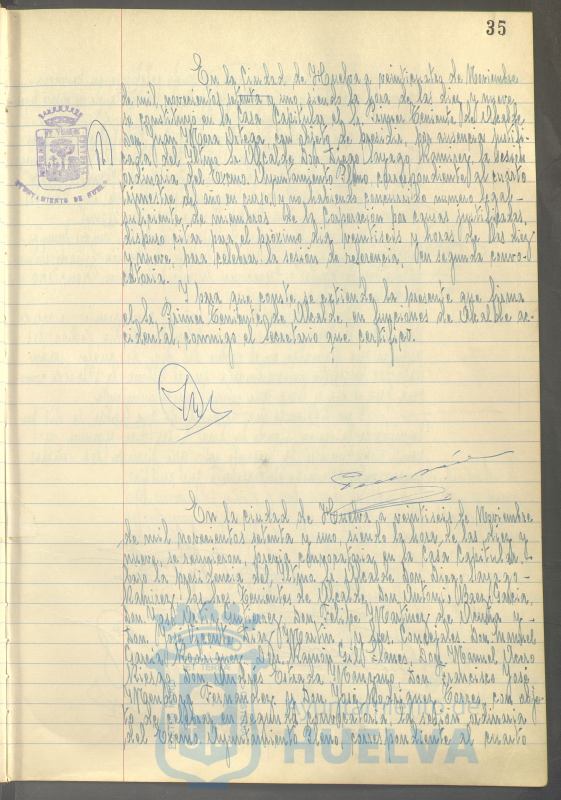 35
En la Ciudad de Huelva a veinticuatro de Noviembre
de mil novecientos setenta y uno siendo la hora de las diez y nueve,
se constituyó en la Casa Capitular el Sr. Primer Teniente de Alcalde
Don Juan Mora Ortega, con objeto de presidir, por ausencia justifi-
cada del Iltmo. Sr. Alcalde Don Diego Sayago Ramírez, la sesión
ordinaria del Excmo. Ayuntamiento Pleno, correspondiente al cuarto
trimestre del año en curso, y no habiendo concurrido número legal
suficiente de miembros de la Corporación por causas justificadas,
dispuso citar para el próximo día veintiseis y horas de las diez
y nueve, para celebrar la sesión de referencia, en segunda convo-
catoria.
Y para que conste se extiende la presente que firma
el Sr. Primer Teniente de Alcalde, en funciones de Alcalde ac-
cidental, conmigo el Secretario que certifico.
AYUNTAMIENTO DE HUELVA
En la ciudad de Huelva, a veintiseis de Noviembre
de mil novecientos setenta y uno, siendo la hora de las diez y
nueve, se reunieron, previa convocatoria en la Casa Capitular,
bajo la presidencia del Iltmo. Sr. Alcalde Don Diego Sayago
Ramírez, los Sres. Tenientes de Alcalde Don Antonio Baez García,
Don Gutiérrez, Don Felipe Martínez de y
Don José Vicente Díaz Martín y Sres. Concejales Don Manuel
García Rodríguez, Don Ramón Llanes, Don Manuel
Don Estrada Manzano, Don Francisco José
Mendoza Fernández y Don José Rodríguez con obje-
to de celebrar en segunda convocatoria, la sesión ordinaria
del Excmo. Ayuntamiento Pleno, correspondiente al cuarto
Ayuntamiento de
HUELVA